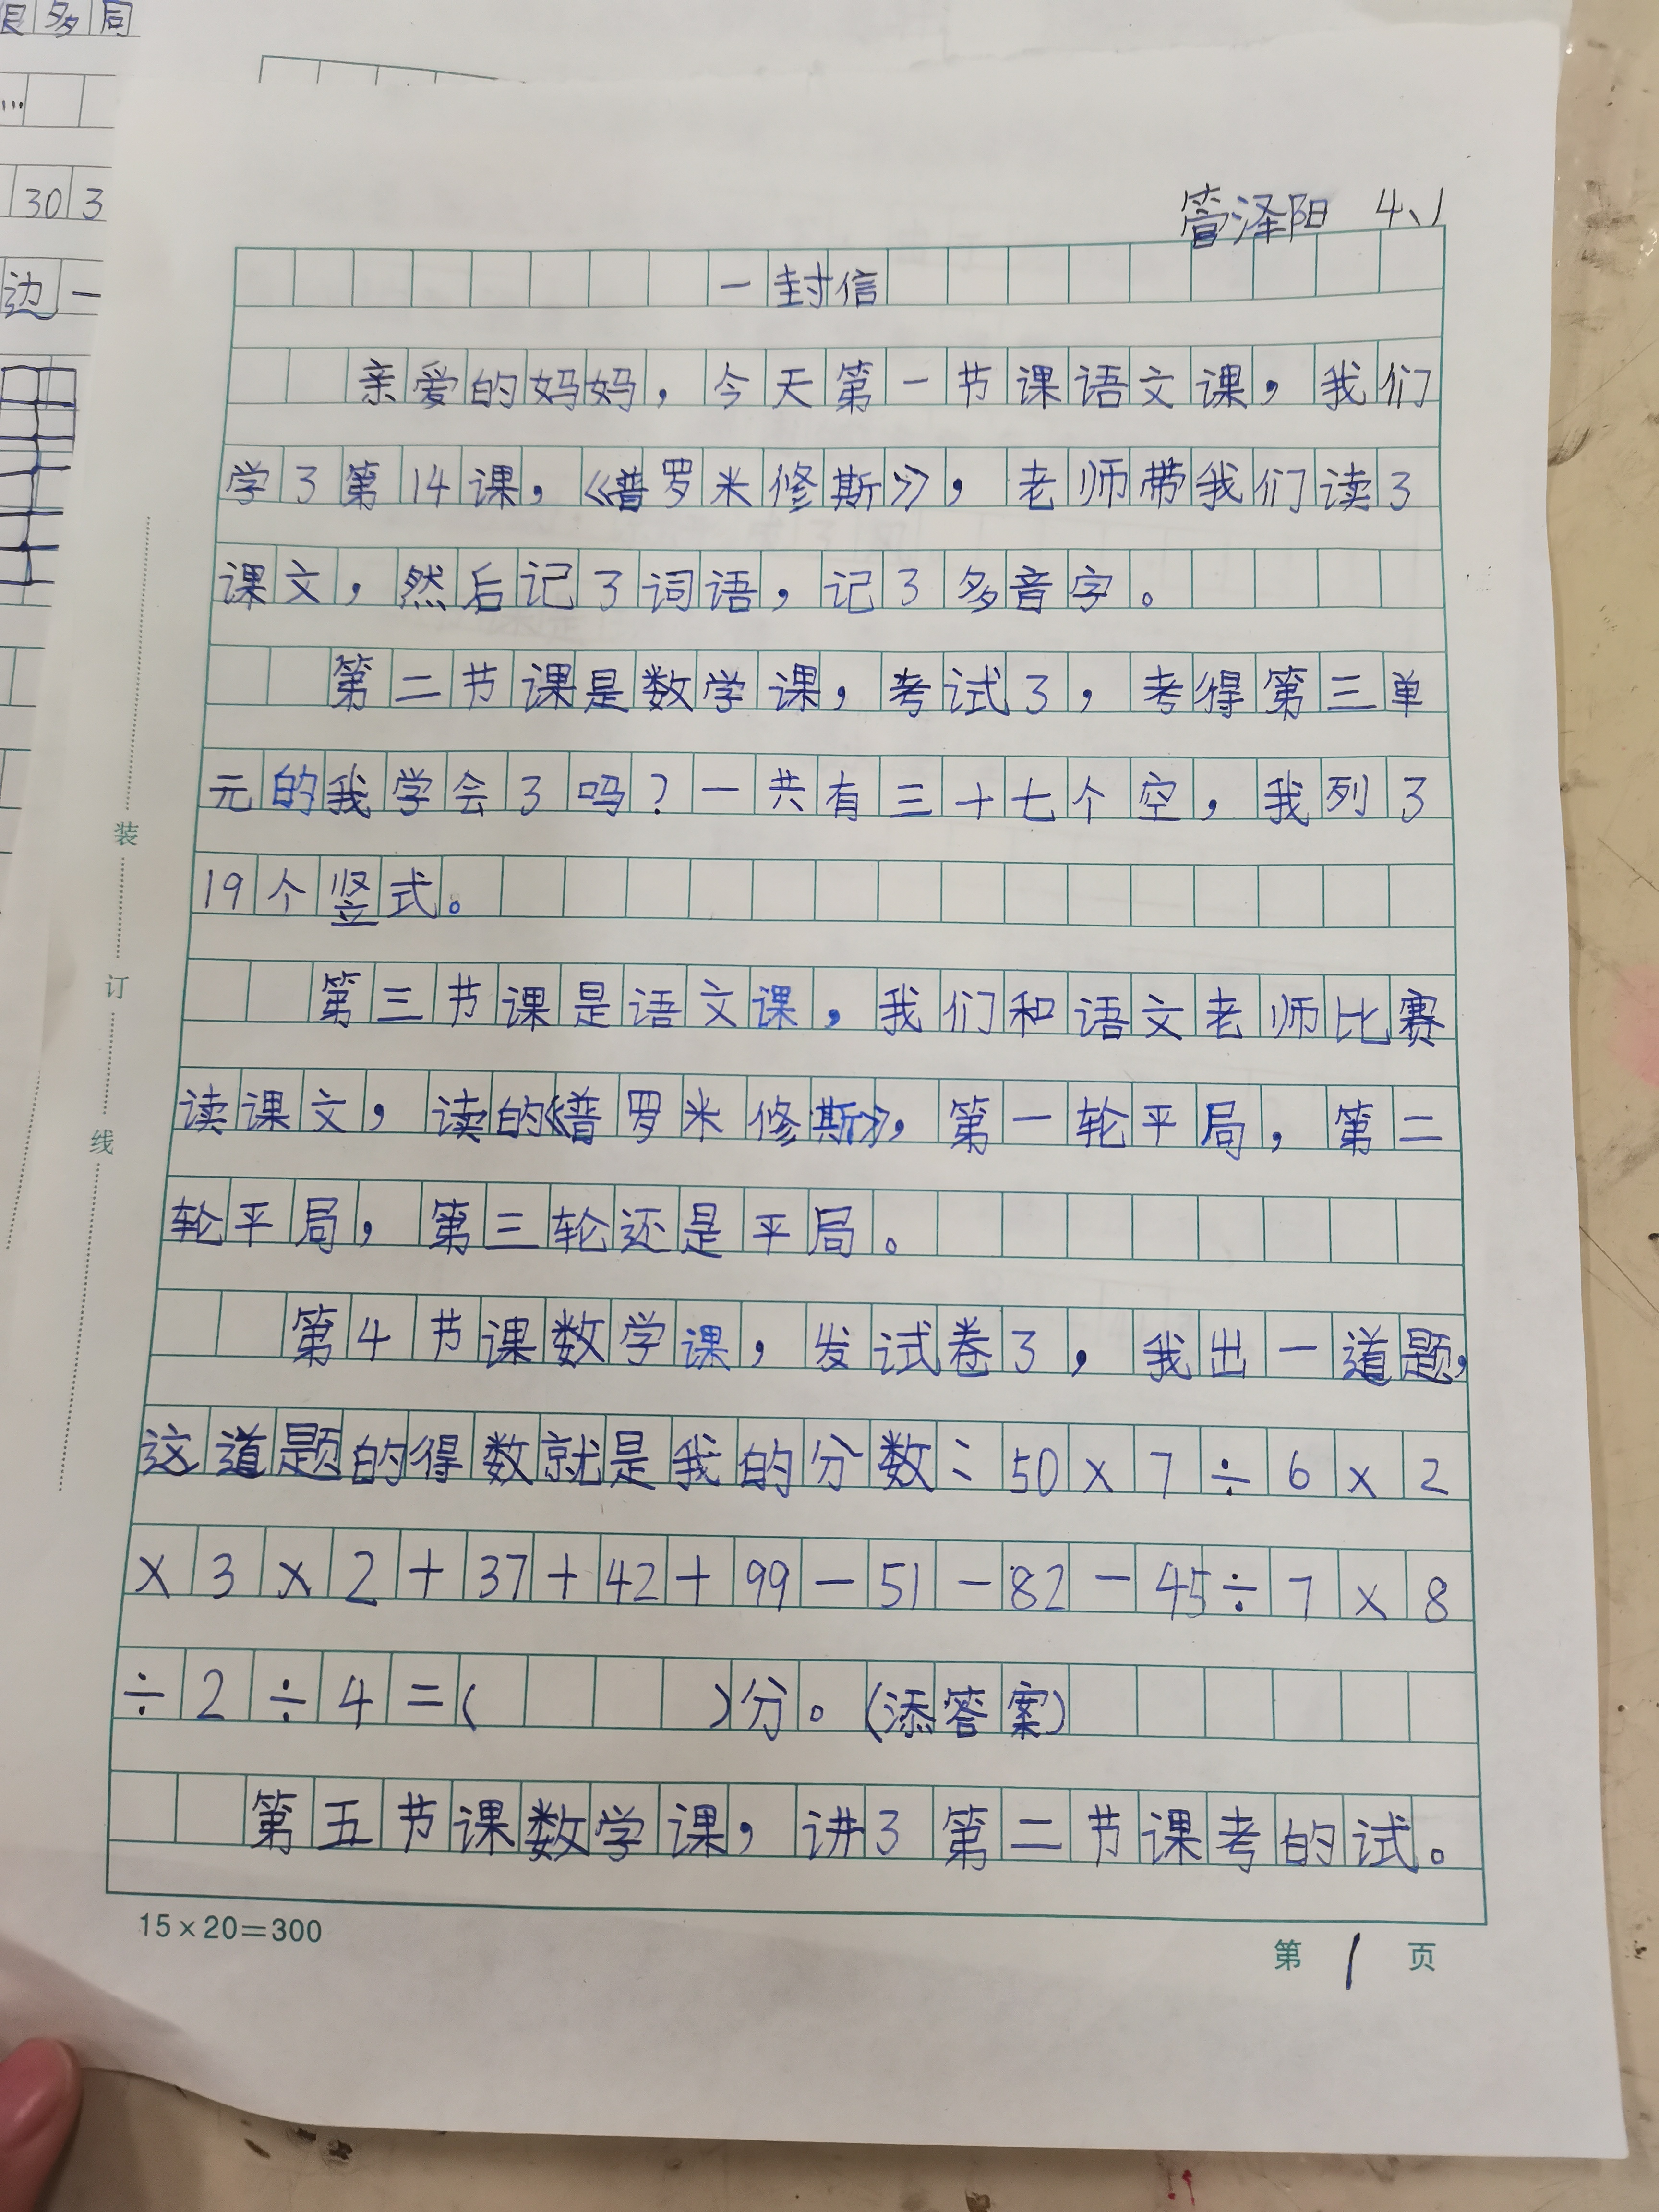 很多同
…
30 3
边一
管泽阳 4、1
一封信
亲爱的妈妈，今天第一节课语文课，我们
学了第14课，《普罗米修斯》，老师带我们读了
课文，然后记了词语，记了多音字。
第二节课是数学课，考试了，考得第三单
元的我学会了吗？一共有三十七个空，我列了
19个竖式。
第三节课是语文课，我们和语文老师比赛
读课文，读的《普罗米修斯》，第一轮平局，第二
轮平局，第三轮还是平局。
第4节课数学课，发试卷了，我出一道题，
这道题的得数就是我的分数：50×7÷6×2
×3×2+37+42+99-51-82-45÷7×8
÷2÷4=（ ）分。（添答案）
第五节课数学课，讲了第二节课考的试。
装
订
线
15×20=300
第 1 页